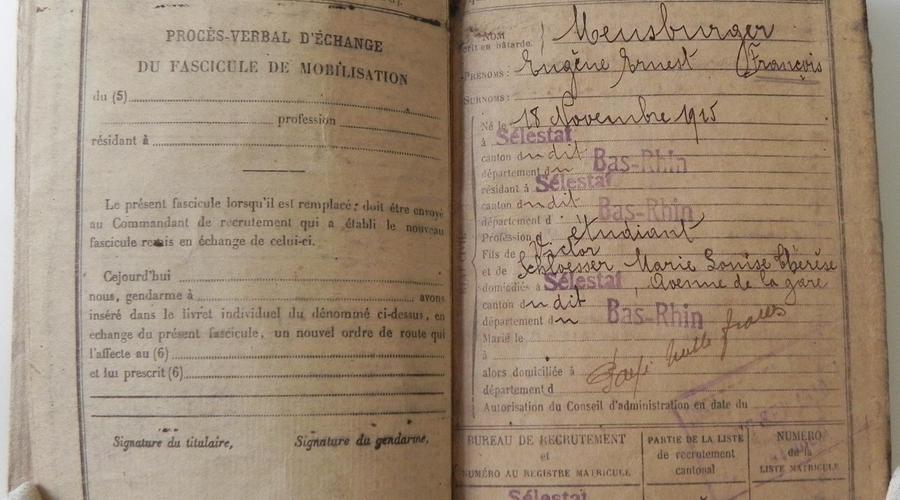 PROCÈS-VERBAL D'ÉCHANGE
DU FASCICULE DE MOBILISATION
du (5)
profession
résidant à
Le présent fascicule lorsqu'il est remplacé; doit être envoyé
au Commandant de recrutement qui a établi le nouveau
fascicule remis en échange de celui-ci.
Cejourd'hui
nous, gendarme à avons
inséré dans le livret individuel du dénommé ci-dessus, en
echange du présent fascicule, un nouvel ordre de route qui
l'affecte au (6)
et lui prescrit (6)
Signature du titulaire, Signature du gendarme,
NOM Meusburger
écrit en bâtarde.
PRÉNOMS: Eugène Ernest François
SURNOMS:
Né le 18 Novembre 1915
à Sélestat
canton dudit
département du Bas-Rhin
résidant à Sélestat
canton dudit
département d Bas-Rhin
Profession d étudiant
Fils de Victor
et de Schloesser Marie Louise Thérèse
domiciliés à Sélestat, Avenue de la gare
canton dudit
département du Bas-Rhin
Marié le
à
alors domiciliée à
mille francs
département d
Autorisation du Conseil d'administration en date du
BUREAU DE RECRUTEMENT
et
NUMÉRO AU REGISTRE MATRICULE
PARTIE DE LA LISTE
de recrutement
cantonal
NUMÉRO
de la
LISTE MATRICULE
Sélestat